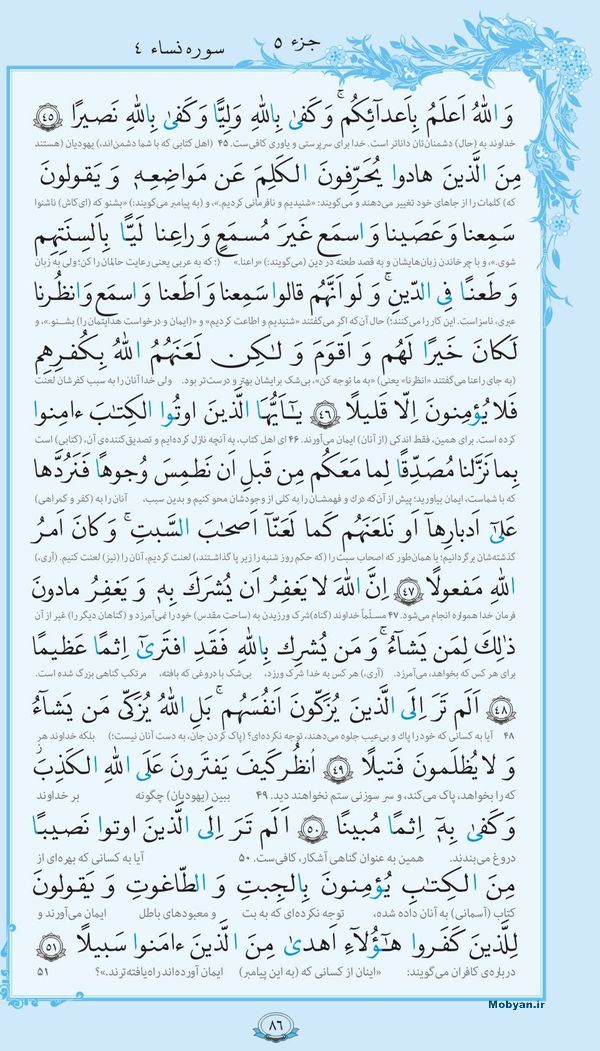 جزء ۵
سوره نساء ۴
وَ اللهُ اَعلَمُ بِاَعدآئِكُم ۚ وَ كَفىٰ بِاللهِ وَلِيًّا وَ كَفىٰ بِاللهِ نَصيرًا ﴿۴۵﴾
خداوند به (حال) دشمنان‌تان داناتر است. خدا برای سرپرستی و یاوری کافی‌ست. ۴۵ (اهل کتابی که با شما دشمن‌اند،) یهودیان (هستند
مِنَ الَّذينَ هادوا يُحَرِّفونَ الكَلِمَ عَن مَواضِعِهٖ وَ يَقولونَ
که) کلمات را از جاهای خود تغییر می‌دهند و می‌گویند: «شنیدیم و نافرمانی کردیم.»، و (به پیامبر می‌گویند:) «بشنو که (ای‌کاش) ناشنوا
سَمِعنا وَ عَصَينا وَ اسمَع غَيرَ مُسمَعٍ وَ راعِنا لَيًّا بِاَلسِنَتِهِم
شوی.»، و با چرخاندن زبان‌هایشان و به قصد طعنه در دین (می‌گویند:) «راعنا.» (؛ که به عربی یعنی رعایت حالمان را کن؛ ولی به زبان
وَ طَعنًا فِى الدّينِ ۚ وَ لَو اَنَّهُم قالوا سَمِعنا وَ اَطَعنا وَ اسمَع وَ انظُرنا
عبری، ناسزاست. این کار را می‌کنند؛) حال آن‌که اگر می‌گفتند «شنیدیم و اطاعت کردیم» و «(ایمان و درخواست هدایتمان را) بشنو.»، و
لَكانَ خَيرًا لَهُم وَ اَقوَمَ وَ لٰكِن لَعَنَهُمُ اللهُ بِكُفرِهِم
(به جای راعنا می‌گفتند «انظرنا» یعنی) «به ما توجه کن»، بی‌شک برایشان بهتر و درست‌تر بود. ولی خدا آنان را به سبب کفرشان لعنت
فَلا يُؤمِنونَ اِلّا قَليلًا ﴿۴۶﴾ يٰۤاَيُّهَا الَّذينَ اوتُوا الكِتٰبَ ءامِنوا
کرده است. برای همین، فقط اندکی (از آنان) ایمان می‌آورند. ۴۶ ای اهل کتاب، به آنچه نازل کرده‌ایم و تصدیق‌کننده‌ی آن، (کتابی) است
بِما نَزَّلنا مُصَدِّقًا لِما مَعَكُم مِن قَبلِ اَن نَطمِسَ وُجوهًا فَنَرُدَّها
که با شماست، ایمان بیاورید؛ پیش از آن‌که درک و فهمشان را به کلی از وجودشان محو کنیم و بدین سبب، آنان را به (کفر و گمراهی)
عَلىٰۤ اَدبارِهاۤ اَو نَلعَنَهُم كَما لَعَنّاۤ اَصحٰبَ السَّبتِ ۚ وَ كانَ اَمرُ
گذشته‌شان برگردانیم؛ یا همان‌طور که اصحاب سبت را (که حکم روز شنبه را زیر پا گذاشتند،) لعنت کردیم، آنان را (نیز) لعنت کنیم. (آری،)
اللهِ مَفعولًا ﴿۴۷﴾ اِنَّ اللهَ لا يَغفِرُ اَن يُشرَكَ بِهٖ وَ يَغفِرُ مادونَ
فرمان خدا همواره انجام می‌شود. ۴۷ مسلّماً خداوند (گناه) شرک ورزیدن به (ساحت مقدس) خود را نمی‌آمرزد و (گناهان دیگر را) غیر از آن
ذٰلِكَ لِمَن يَشآءُ ۚ وَ مَن يُشرِك بِاللهِ فَقَدِ افتَرىٰۤ اِثمًا عَظيمًا
برای هر کس که بخواهد، می‌آمرزد. (آری،) هر کس به خدا شرک ورزد، بی‌شک با دروغی که بافته، مرتکب گناهی بزرگ شده است.
﴿۴۸﴾ اَلَم تَرَ اِلَى الَّذينَ يُزَكّونَ اَنفُسَهُم ۚ بَلِ اللهُ يُزَكّى مَن يَشآءُ
۴۸ آیا به کسانی که خود را پاک و بی‌عیب جلوه می‌دهند، توجه نکرده‌ای؟ (پاک کردن جان، به دست آنان نیست؛) بلکه خداوند هر
وَ لا يُظلَمونَ فَتيلًا ﴿۴۹﴾ اُنظُر كَيفَ يَفتَرونَ عَلَى اللهِ الكَذِبَ ۖ
که را بخواهد، پاک می‌کند، و سر سوزنی ستم نخواهند دید. ۴۹ ببین (یهودیان) چگونه بر خداوند
وَ كَفىٰ بِهٖۤ اِثمًا مُبينًا ﴿۵۰﴾ اَلَم تَرَ اِلَى الَّذينَ اوتوا نَصيبًا
دروغ می‌بندند. همین به عنوان گناهی آشکار، کافی‌ست. ۵۰ آیا به کسانی که بهره‌ای از
مِنَ الكِتٰبِ يُؤمِنونَ بِالجِبتِ وَ الطّاغوتِ وَ يَقولونَ
کتاب (آسمانی) به آنان داده شده، توجه نکرده‌ای که به بت و معبودهای باطل ایمان می‌آورند و
لِلَّذينَ كَفَروا هٰۤؤُلآءِ اَهدىٰ مِنَ الَّذينَ ءامَنوا سَبيلًا ﴿۵۱﴾
درباره‌ی کافران می‌گویند: «اینان از کسانی که (به این پیامبر) ایمان آورده‌اند راه‌یافته‌ترند.»؟ ۵۱
Mobyan.ir
۸۶